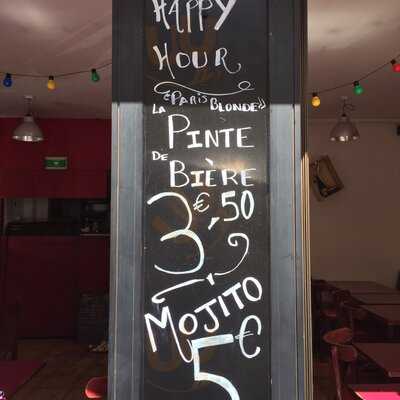 HAPPY
HOUR
"PARIS BLONDE"
LA
PINTE
DE
BIÈRE
3€,50
MOJITO
5€